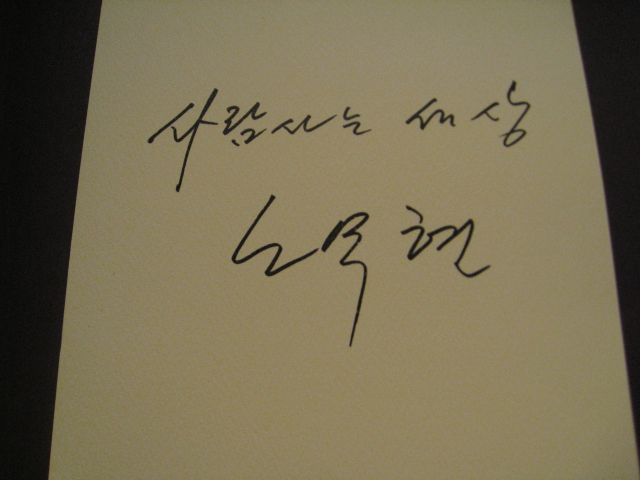 사람사는 세상
노무현